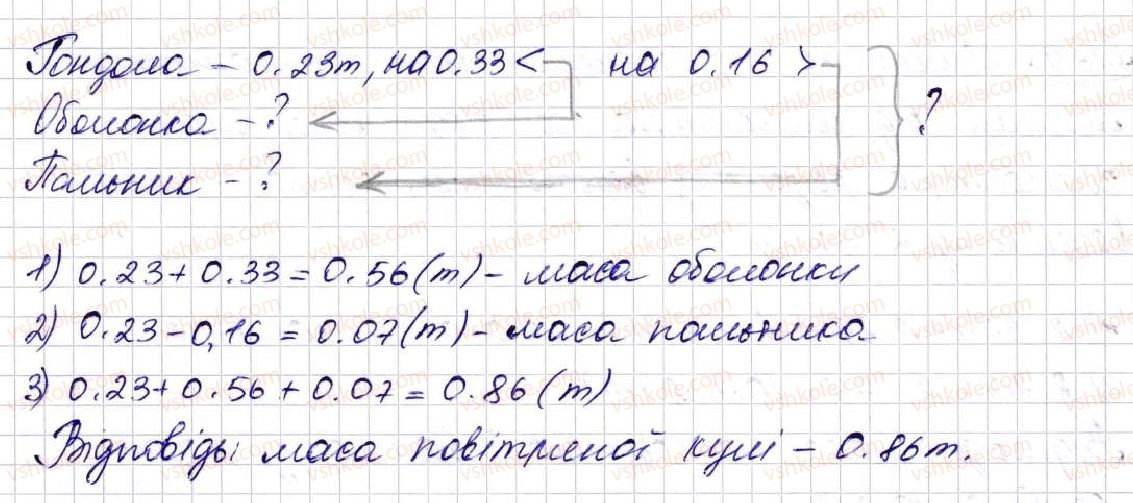 Гондола – 0.23т, на 0.33 < на 0.16 >
Оболонка – ?
Пальник – ?
?
1) 0.23 + 0.33 = 0.56 (т) – маса оболонки
2) 0.23 – 0,16 = 0.07 (т) – маса пальника
3) 0.23 + 0.56 + 0.07 = 0.86 (т)
Відповідь: маса повітряної кулі – 0.86т.